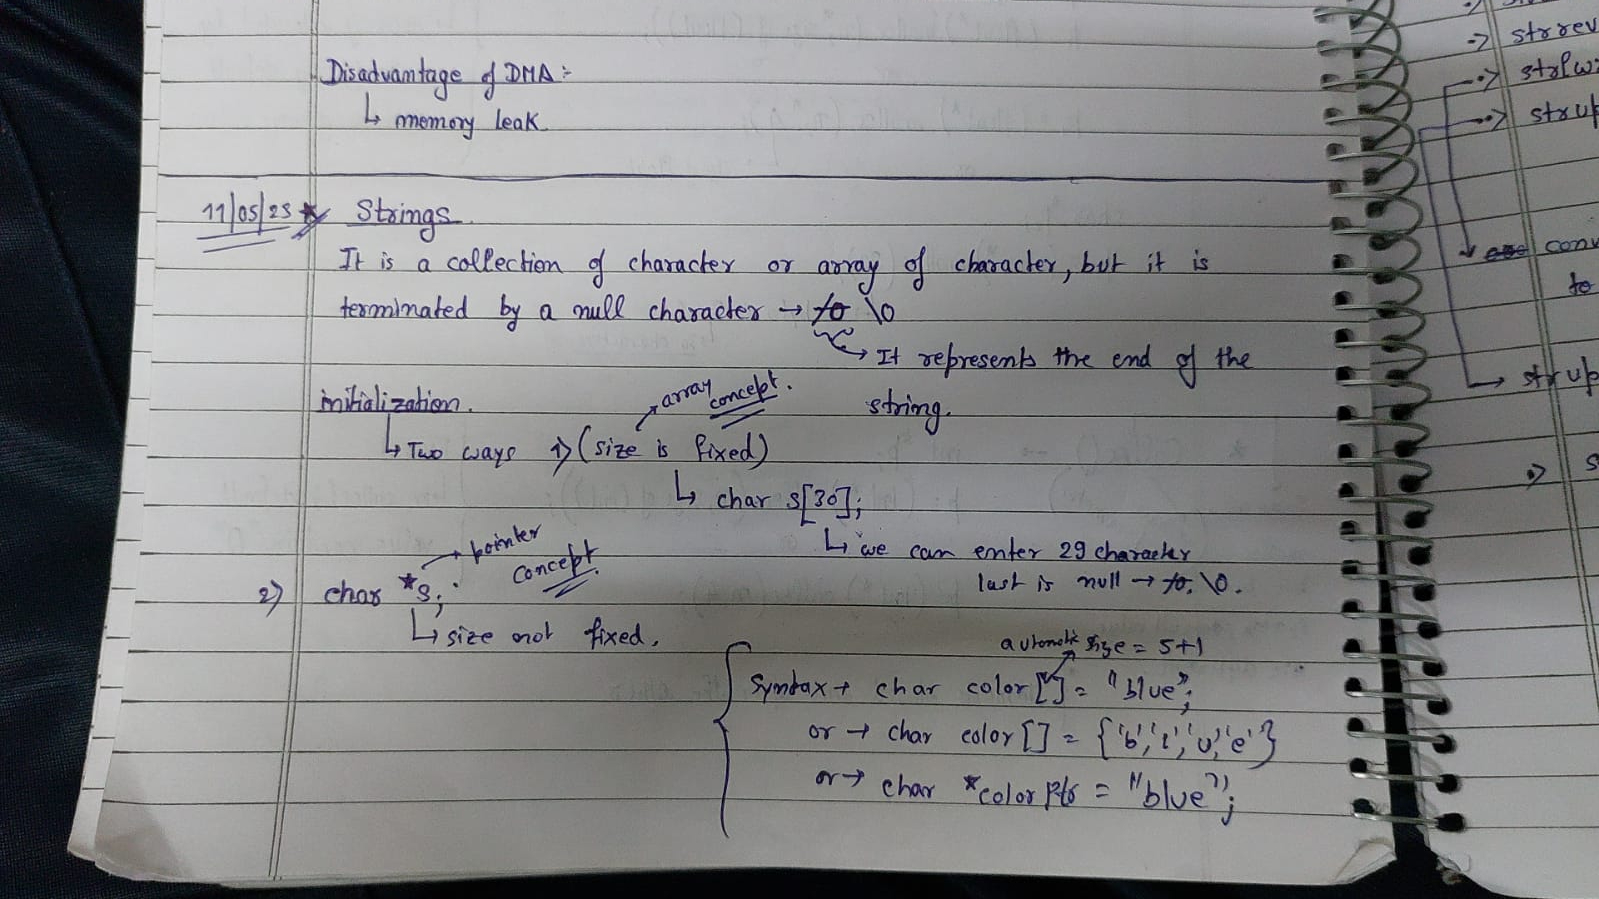 Disadvantage of DMA :-
↳ memory leak
11/05/23 * Strings
It is a collection of character or array of character, but it is
terminated by a null character → \0
↳ It represents the end of the
string.
initialization.
→ array concept.
↳ Two ways 1) (size is fixed)
↳ char s[30];
↳ we can enter 29 character
last is null → \0.
→ pointer
concept.
2) char *s;
↳ size not fixed.
automatic size = 5+1
Syntax → char color[] = "blue";
or → char color[] = {'b','l','u','e'}
or → char *colorPtr = "blue";
→ strrev
→ strlw
→ strup
conv
to
→ strup
→ s